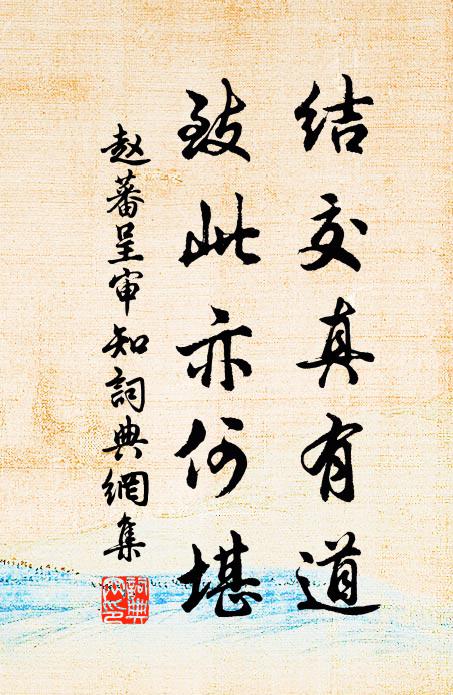 结交真有道
致此亦何堪
赵蕃呈审知词典網集